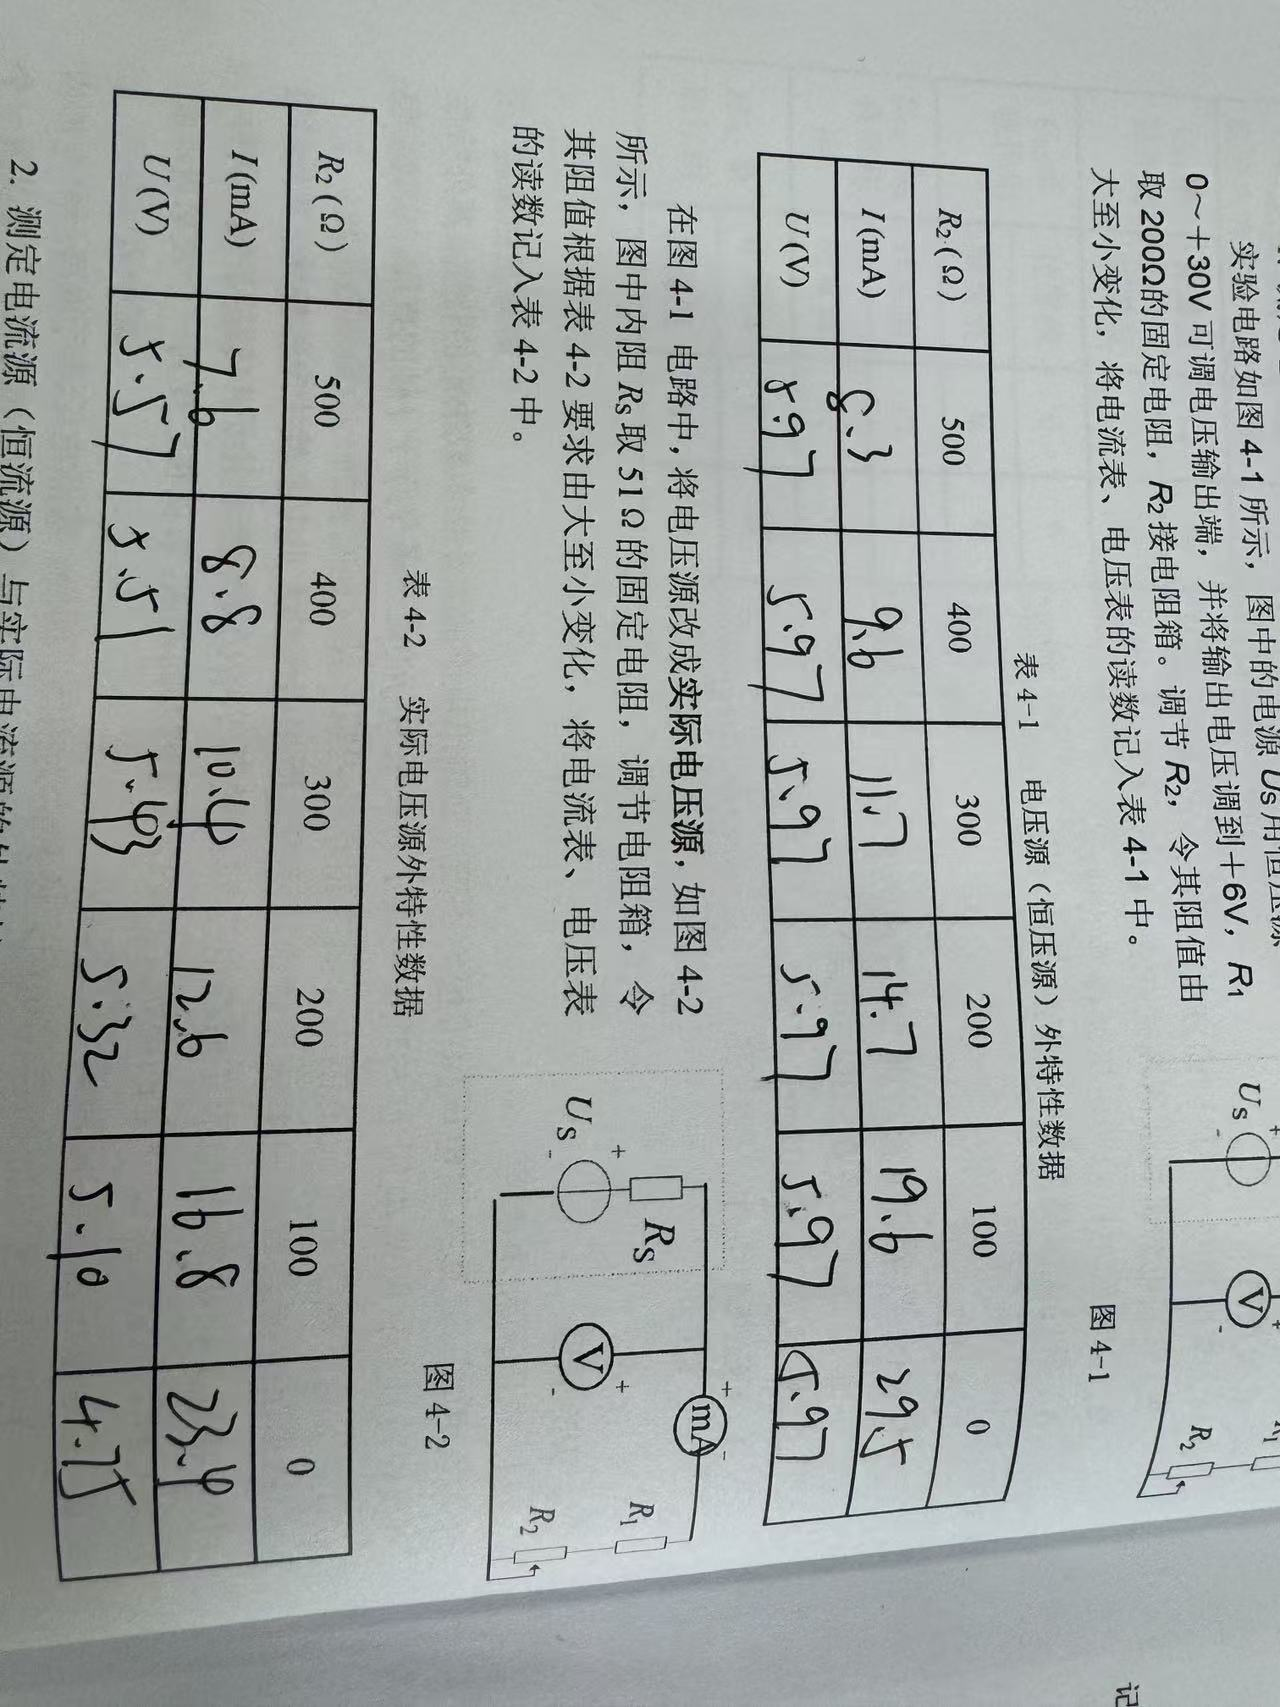 实验电路如图 4-1 所示，图中的电源 Us 用恒压源
0～＋30V 可调电压输出端，并将输出电压调到＋6V，R1
取 200Ω的固定电阻，R2 接电阻箱。调节 R2，令其阻值由
大至小变化，将电流表、电压表的读数记入表 4-1 中。
US
+
-
V
+
-
R1
R2
图 4-1
表 4-1 电压源（恒压源）外特性数据
R2 (Ω) 500 400 300 200 100 0
I (mA) 8.3 9.6 11.7 14.7 19.6 29.5
U (V) 5.97 5.97 5.97 5.97 5.97 5.97
在图 4-1 电路中，将电压源改成实际电压源，如图 4-2
所示，图中内阻 RS 取 51Ω 的固定电阻，调节电阻箱，令
其阻值根据表 4-2 要求由大至小变化，将电流表、电压表
的读数记入表 4-2 中。
RS
US
+
-
V
+
-
+
mA
-
R1
R2
图 4-2
表 4-2 实际电压源外特性数据
R2 (Ω) 500 400 300 200 100 0
I (mA) 7.6 8.8 10.4 12.6 16.8 23.4
U (V) 5.57 5.51 5.43 5.32 5.10 4.75
2. 测定电流源（恒流源）与实际电流源的外特性
记